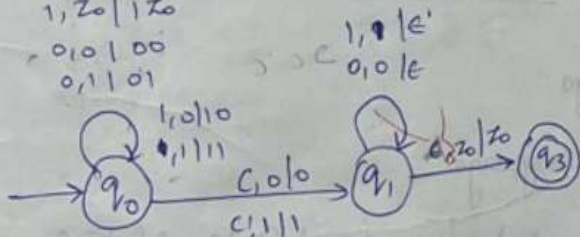 1, Z0 | 1Z0
0, 0 | 00
0, 1 | 01
1, 0 | 10
1, 1 | 11
1, 1 | ε
0, 0 | ε
q0
C, 0 | 0
C, 1 | 1
q1
ε, Z0 | Z0
q3